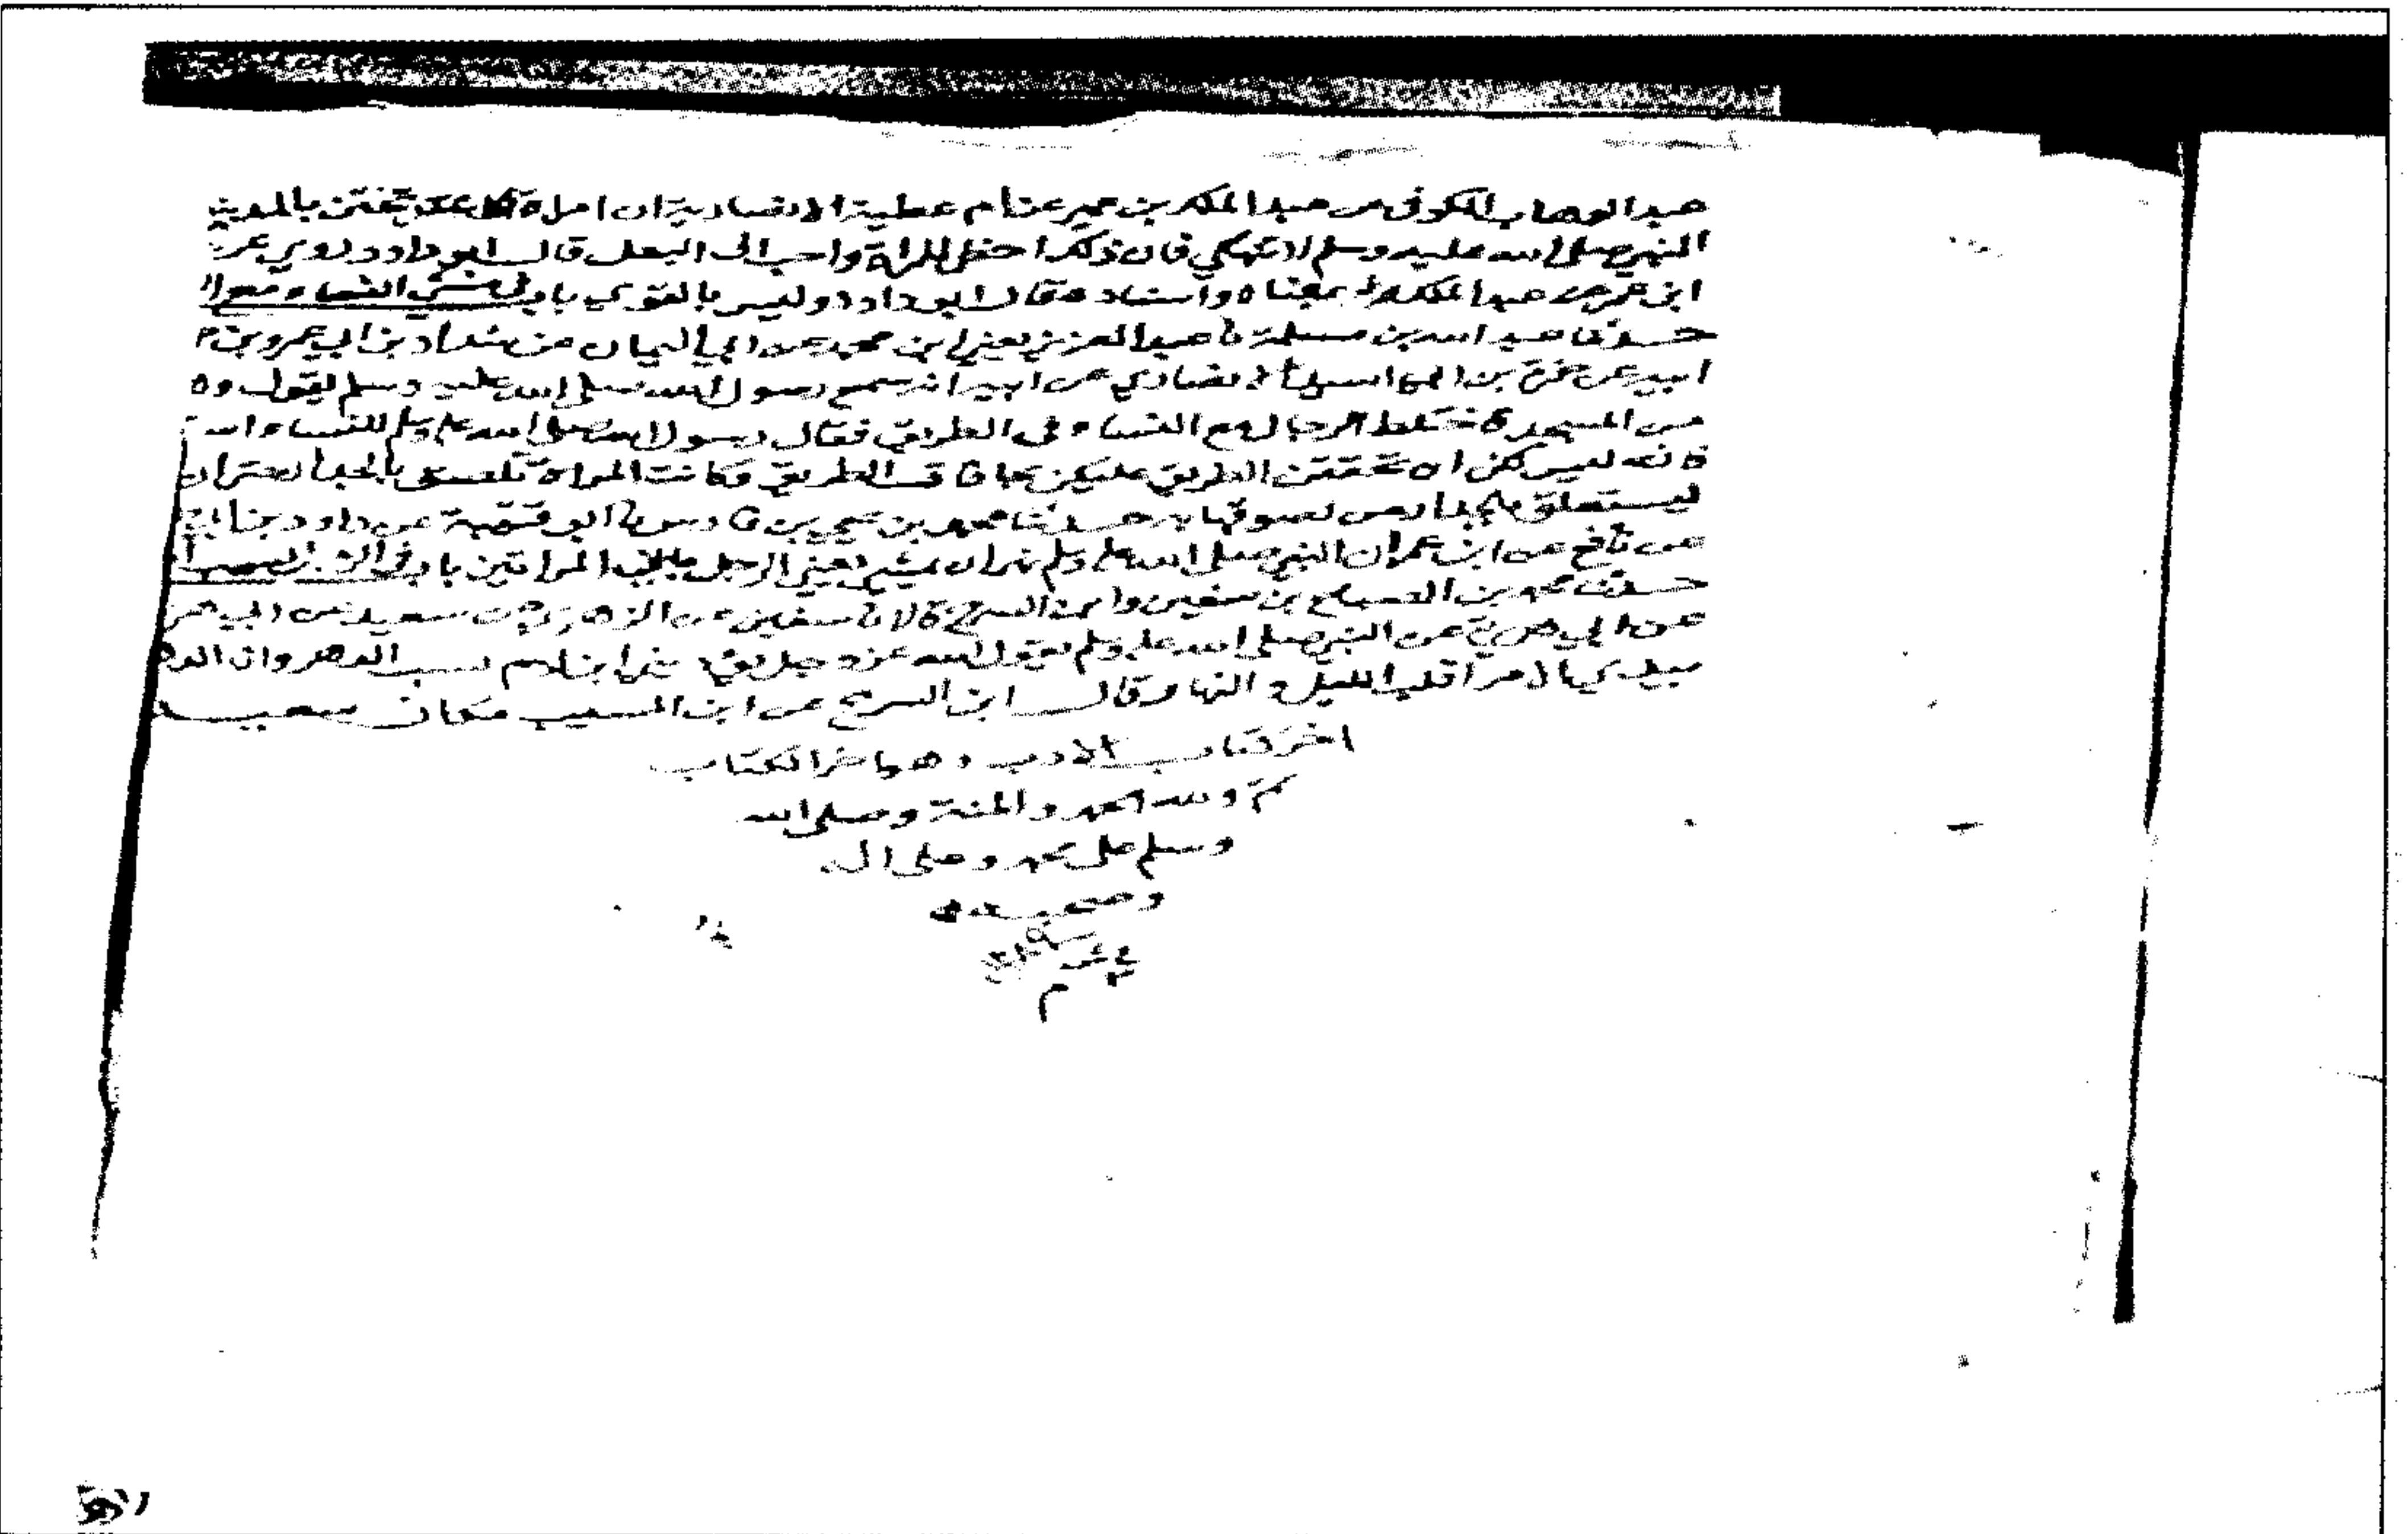 عبد الوهاب الكوفى عن عبد الملك بن عمير عن ام عطية الانصارية ان امراة كانت تختن بالمدينة
النبى صلى الله عليه وسلم لا تنهكي فان ذلك احظى للمراة واحب الى البعل قال ابو داود روي عن
ابن عمرو عن عبد الملك بمعناه واسناده قال ابو داود وليس بالقوي باب في مشي النساء مع الر
حدثنا عبد الله بن مسلمة نا عبد العزيز يعنى ابن محمد عن ابي اليمان عن شداد بن ابي عمرو بن
ابيه عن حمزة بن ابي اسيد الانصاري عن ابيه انه سمع رسول الله صلى الله عليه وسلم يقول وه
من المسجد فاختلط الرجال مع النساء فى الطريق فقال رسول الله صلى الله عليه وسلم للنساء
فانه ليس لكن ان تحققن الطريق عليكن بحافات الطريق فكانت المراة تلصق بالجدار حتى ان
ليتعلق بالجدار من لصوقها به حدثنا محمد بن يحيى بن فارس نا ابو قتيبة عن داود بن ابي
عن نافع عن ابن عمر ان النبي صلى الله عليه وسلم نهى ان يمشي يعني الرجل بين المراتين باب في الر
حدثنا محمد بن الصباح بن سفين وابن السرح قالا نا سفين عن الزهري عن سعيد
عن ابي هريرة عن النبي صلى الله عليه وسلم يقول الله عز وجل يؤذيني ابن ادم يسب الدهر وانا الده
بيدي الامر اقلب الليل والنهار قال ابن السرح عن ابن المسيب مكان سعيد
اخر كتاب الادب وهو اخر الكتاب
تم ولله الحمد والمنة وصلى الله
وسلم على محمد وعلى اله
وصحبه
م